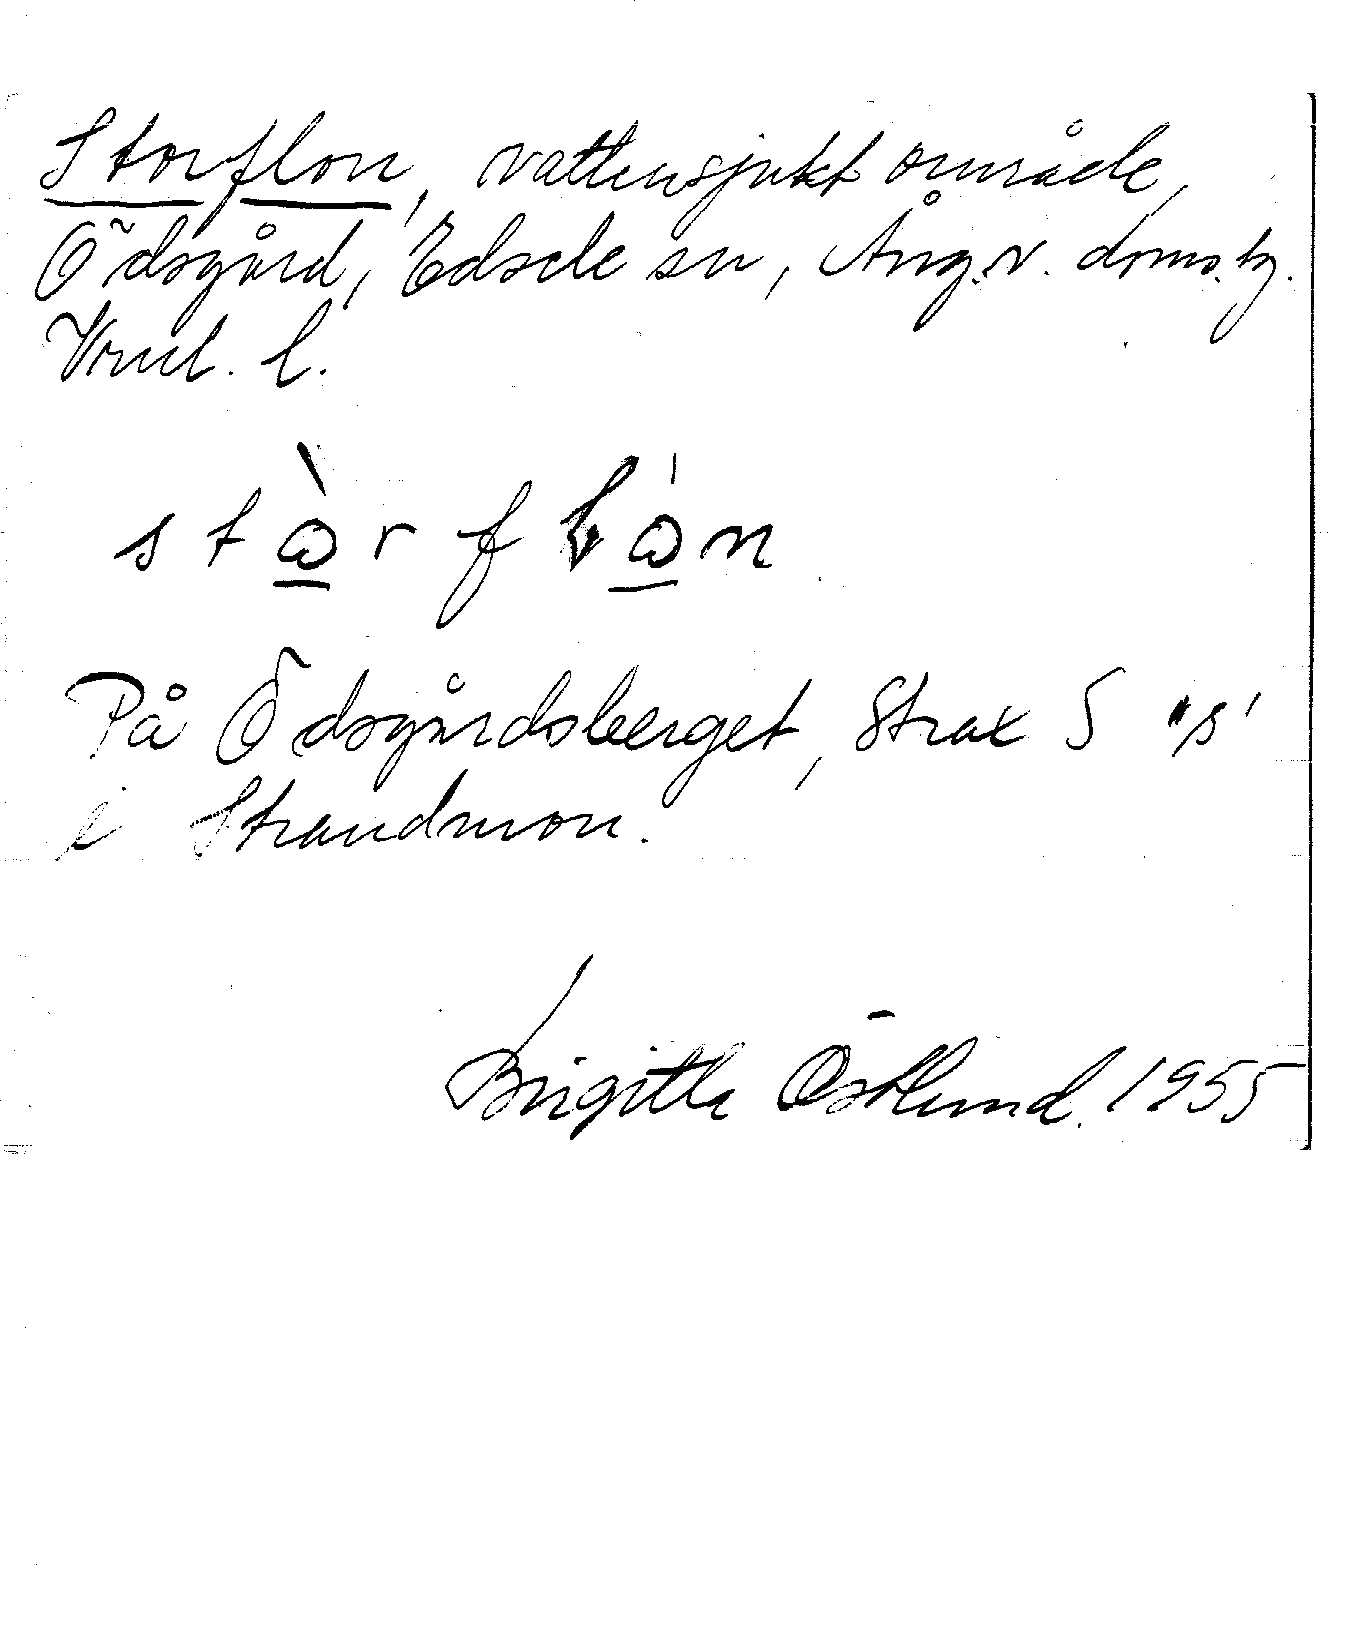 Storflon, vattensjukt område,
Ödsgård, Edsele sn, Ång.v. doms.hg.
Vrnl. l.
stὼ̲rflώ̲n
På Ödsgårdsberget, strax S "s"
i Strandmon.
Birgitta Östlund. 1955